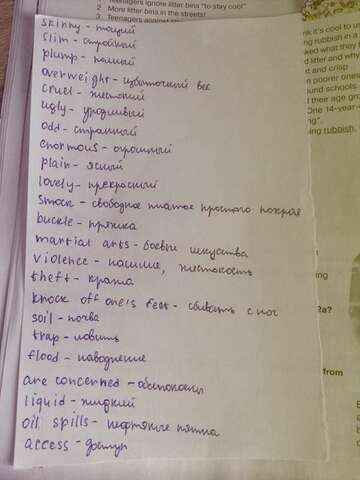 Teenagers ignore litter bins "to stay cool"
2 More litter bins in the streets!
3 Teenagers against
skinny - тощий
slim - стройный
plump - полный
overweight - избыточный вес
cruel - жестокий
ugly - уродливый
odd - странный
enormous - огромный
plain - ясный
lovely - прекрасный
smock - свободное платье простого покроя
buckle - пряжка
martial arts - боевые искусства
violence - насилие, жестокость
theft - кража
knock off one's feet - сбивать с ног
soil - почва
trap - ловить
flood - наводнение
are concerned - обеспокоены
liquid - жидкий
oil spills - нефтяные пятна
access - доступ
it's cool to
rubbish in a
asked what they
litter and why
and crisp
poorer
schools.
their age
One 14-year-
rubbish,
2a?
from